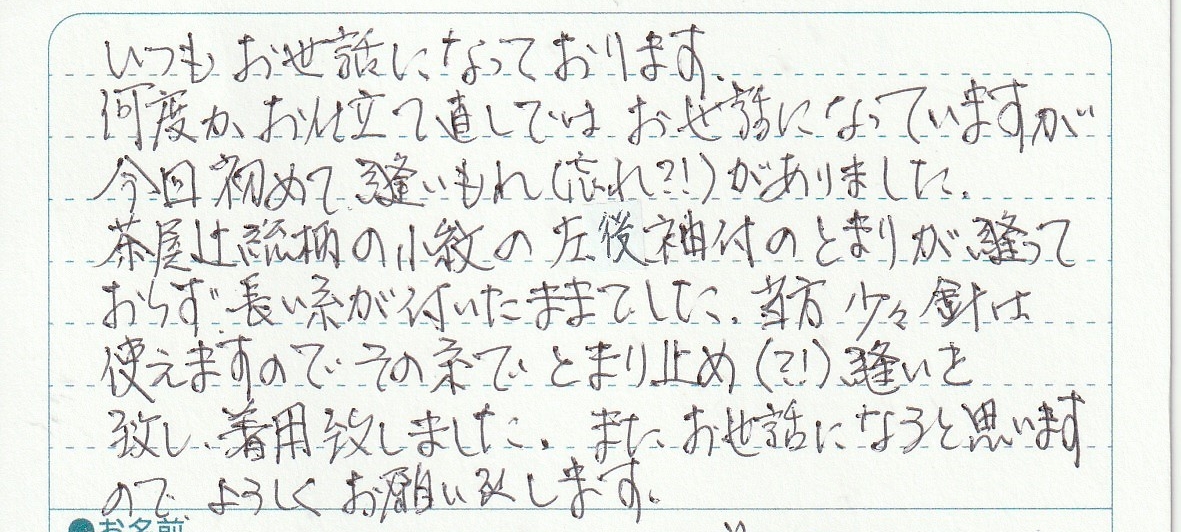 いつもお世話になっております。
何度か、お仕立て直しではお世話になっていますが
今回初めて縫いもれ(忘れ?!)がありました。
茶屋辻絵柄の小紋の左後袖付のとまりが縫って
おらず長い糸が付いたままでした。当方少々針は
使えますのでその糸でとまり止め(?!)縫いを
致し、着用致しました。またお世話になろうと思います
のでよろしくお願い致します。
●お名前